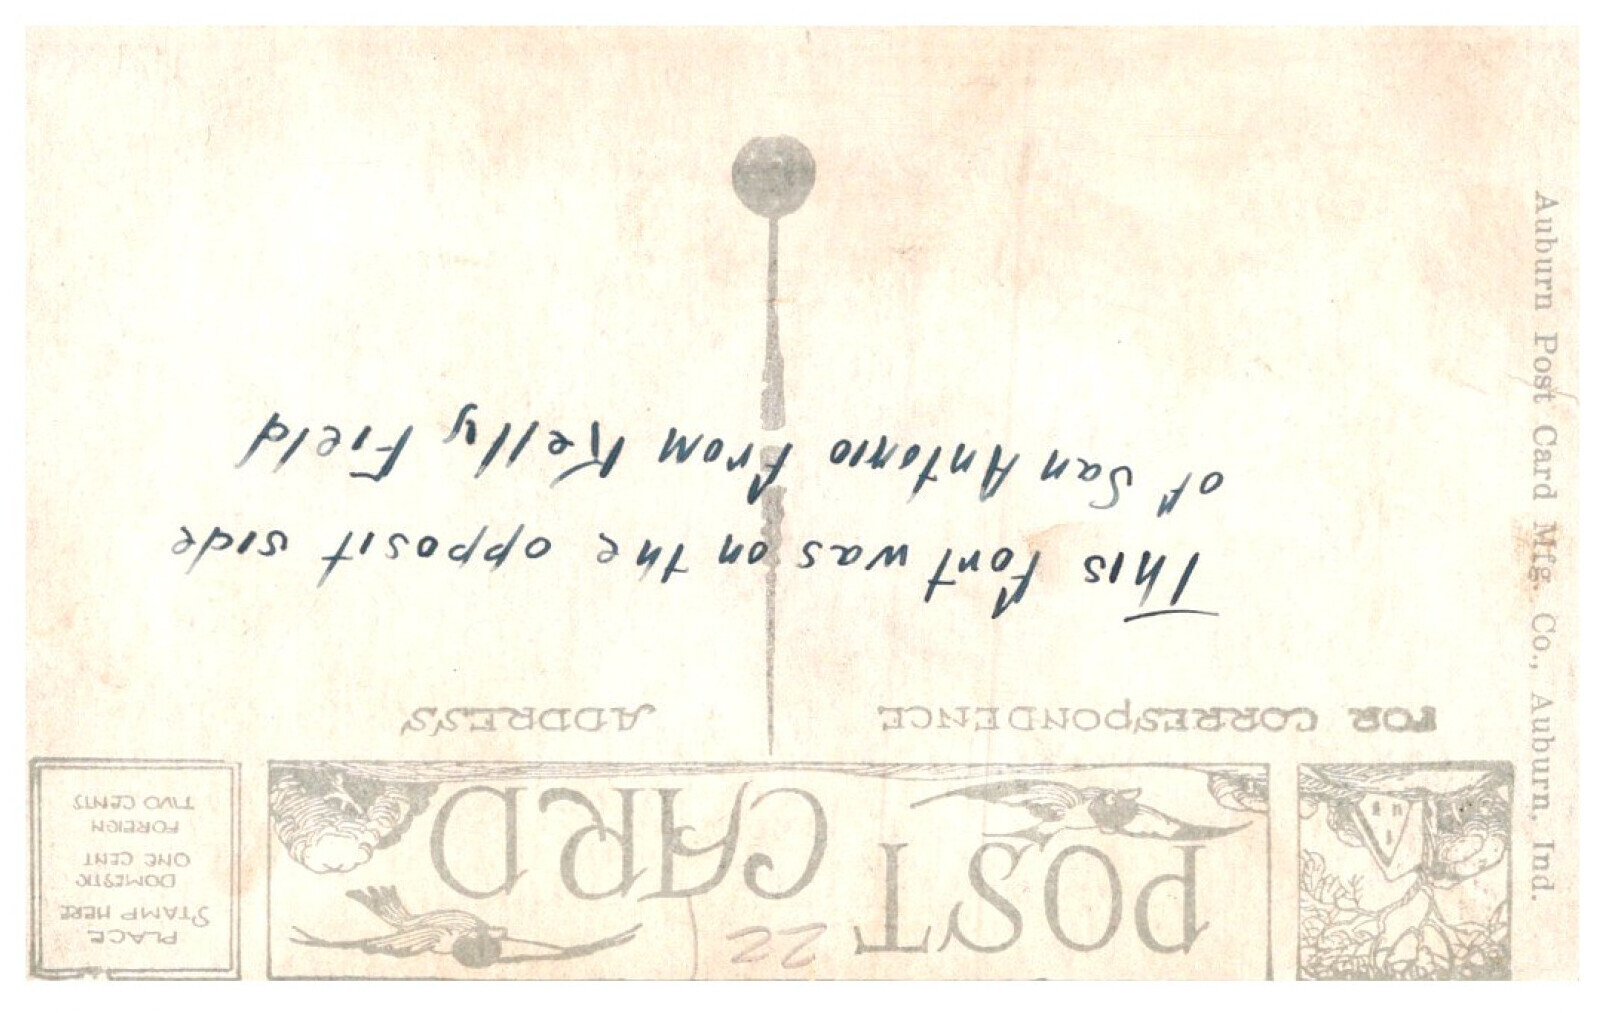 POST CARD
22
PLACE
STAMP HERE
DOMESTIC
ONE CENT
FOREIGN
TWO CENTS
FOR CORRESPONDENCE
ADDRESS
This Fort was on the opposit side
of San Antonio From Kelly Field
Auburn Post Card Mfg. Co., Auburn, Ind.